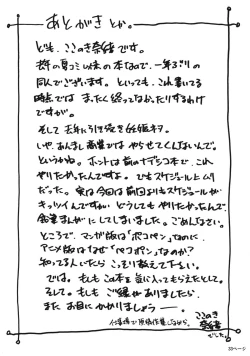 あとがきとか。
ども、ここのき奈緒です。
去年の夏コミ以来の本なので、一年ぶりの
同人でございます。といっても、これ書いてる
時点では まったく終ってなかったりするわけ
ですが。
そして去年に引き続き を
いや、あんまし商業では やらせてくんないんで。
というかね。ホントは前のナデシコ本で、これ
やりたかったんですよ。でもスケジュール上ムリ
だった。実は今回は前回よりもスケジュールが
キッツイんですが、どうしてもやりたかったんで、
まんがにしてしまいました。ごめんなさい。
ところで、マンガ版は「ポコペン」なのに、
アニメ版はなぜ「ペコポン」なのか?
知ってる人いたら こっそり教えて下さい。
では。もしもこの本を気に入ってもらえたとして。
そして。もしもご縁がありましたら、
また お目にかかりましょう——。
仕事場で原稿作業しながら。
ここのき
奈緒
でした。
ページ